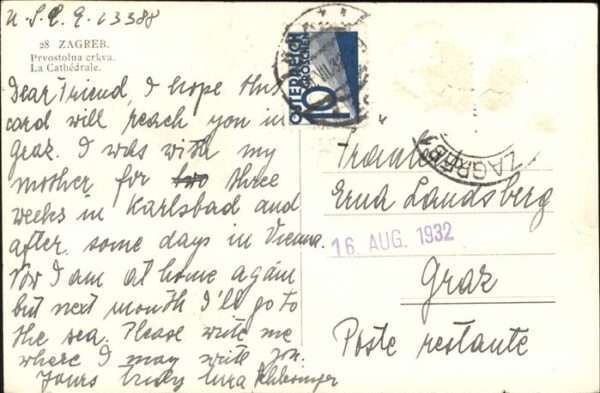 U.S.C.G. 63388
28 ZAGREB.
Prvostolna crkva.
La Cathédrale.
Dear Friend, I hope this
card will reach you in
Graz. I was with my
mother for two three
weeks in Karlsbad and
after some days in Vienna.
Now I am at home again
but next month I'll go to
the sea. Please write me
where I may write you.
Yours truly
Schlesinger
ÖSTERREICH
10
GROSCHEN
ZAGREB
Fräulein
Erna Landsberg
16. AUG. 1932
Graz
Poste restante